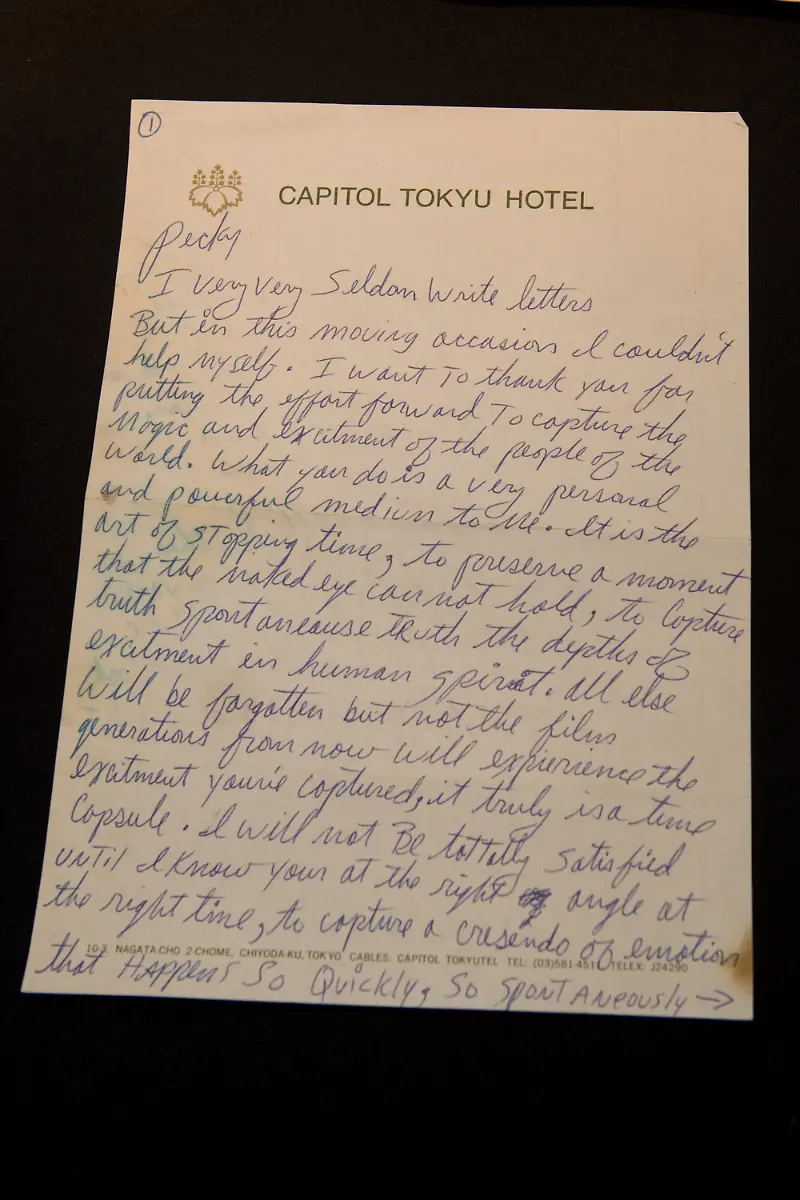 ①
CAPITOL TOKYU HOTEL
Pecky
I very very Seldom Write letters
But in this moving occasion I couldn't
help myself. I want To thank you for
putting the effort forward To capture the
Magic and excitment of the people of the
World. What you do is a very personal
and powerful medium to Me. It is the
art of STopping time, to preserve a moment
that the naked eye cannot hold, to Capture
truth spontaneouse truth the depths of
excitment in human spirit. All else
will be forgotten but not the film
generations from now will experience the
excitment you've captured, it truly is a time
Capsule. I will not Be tottally satisfied
UNTil I Know your at the right angle at
the right time, to capture a cresendo of emotion
10-3, NAGATA-CHO 2-CHOME, CHIYODA-KU, TOKYO CABLES: CAPITOL TOKYUTEL TEL: (03)581-4511 TELEX: J24290
that HAppens So Quickly, So SponTAneously →